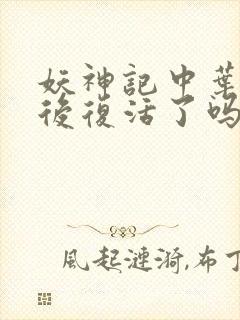 妖神記中葉
後復活了嗎
風起漣漪,布丁